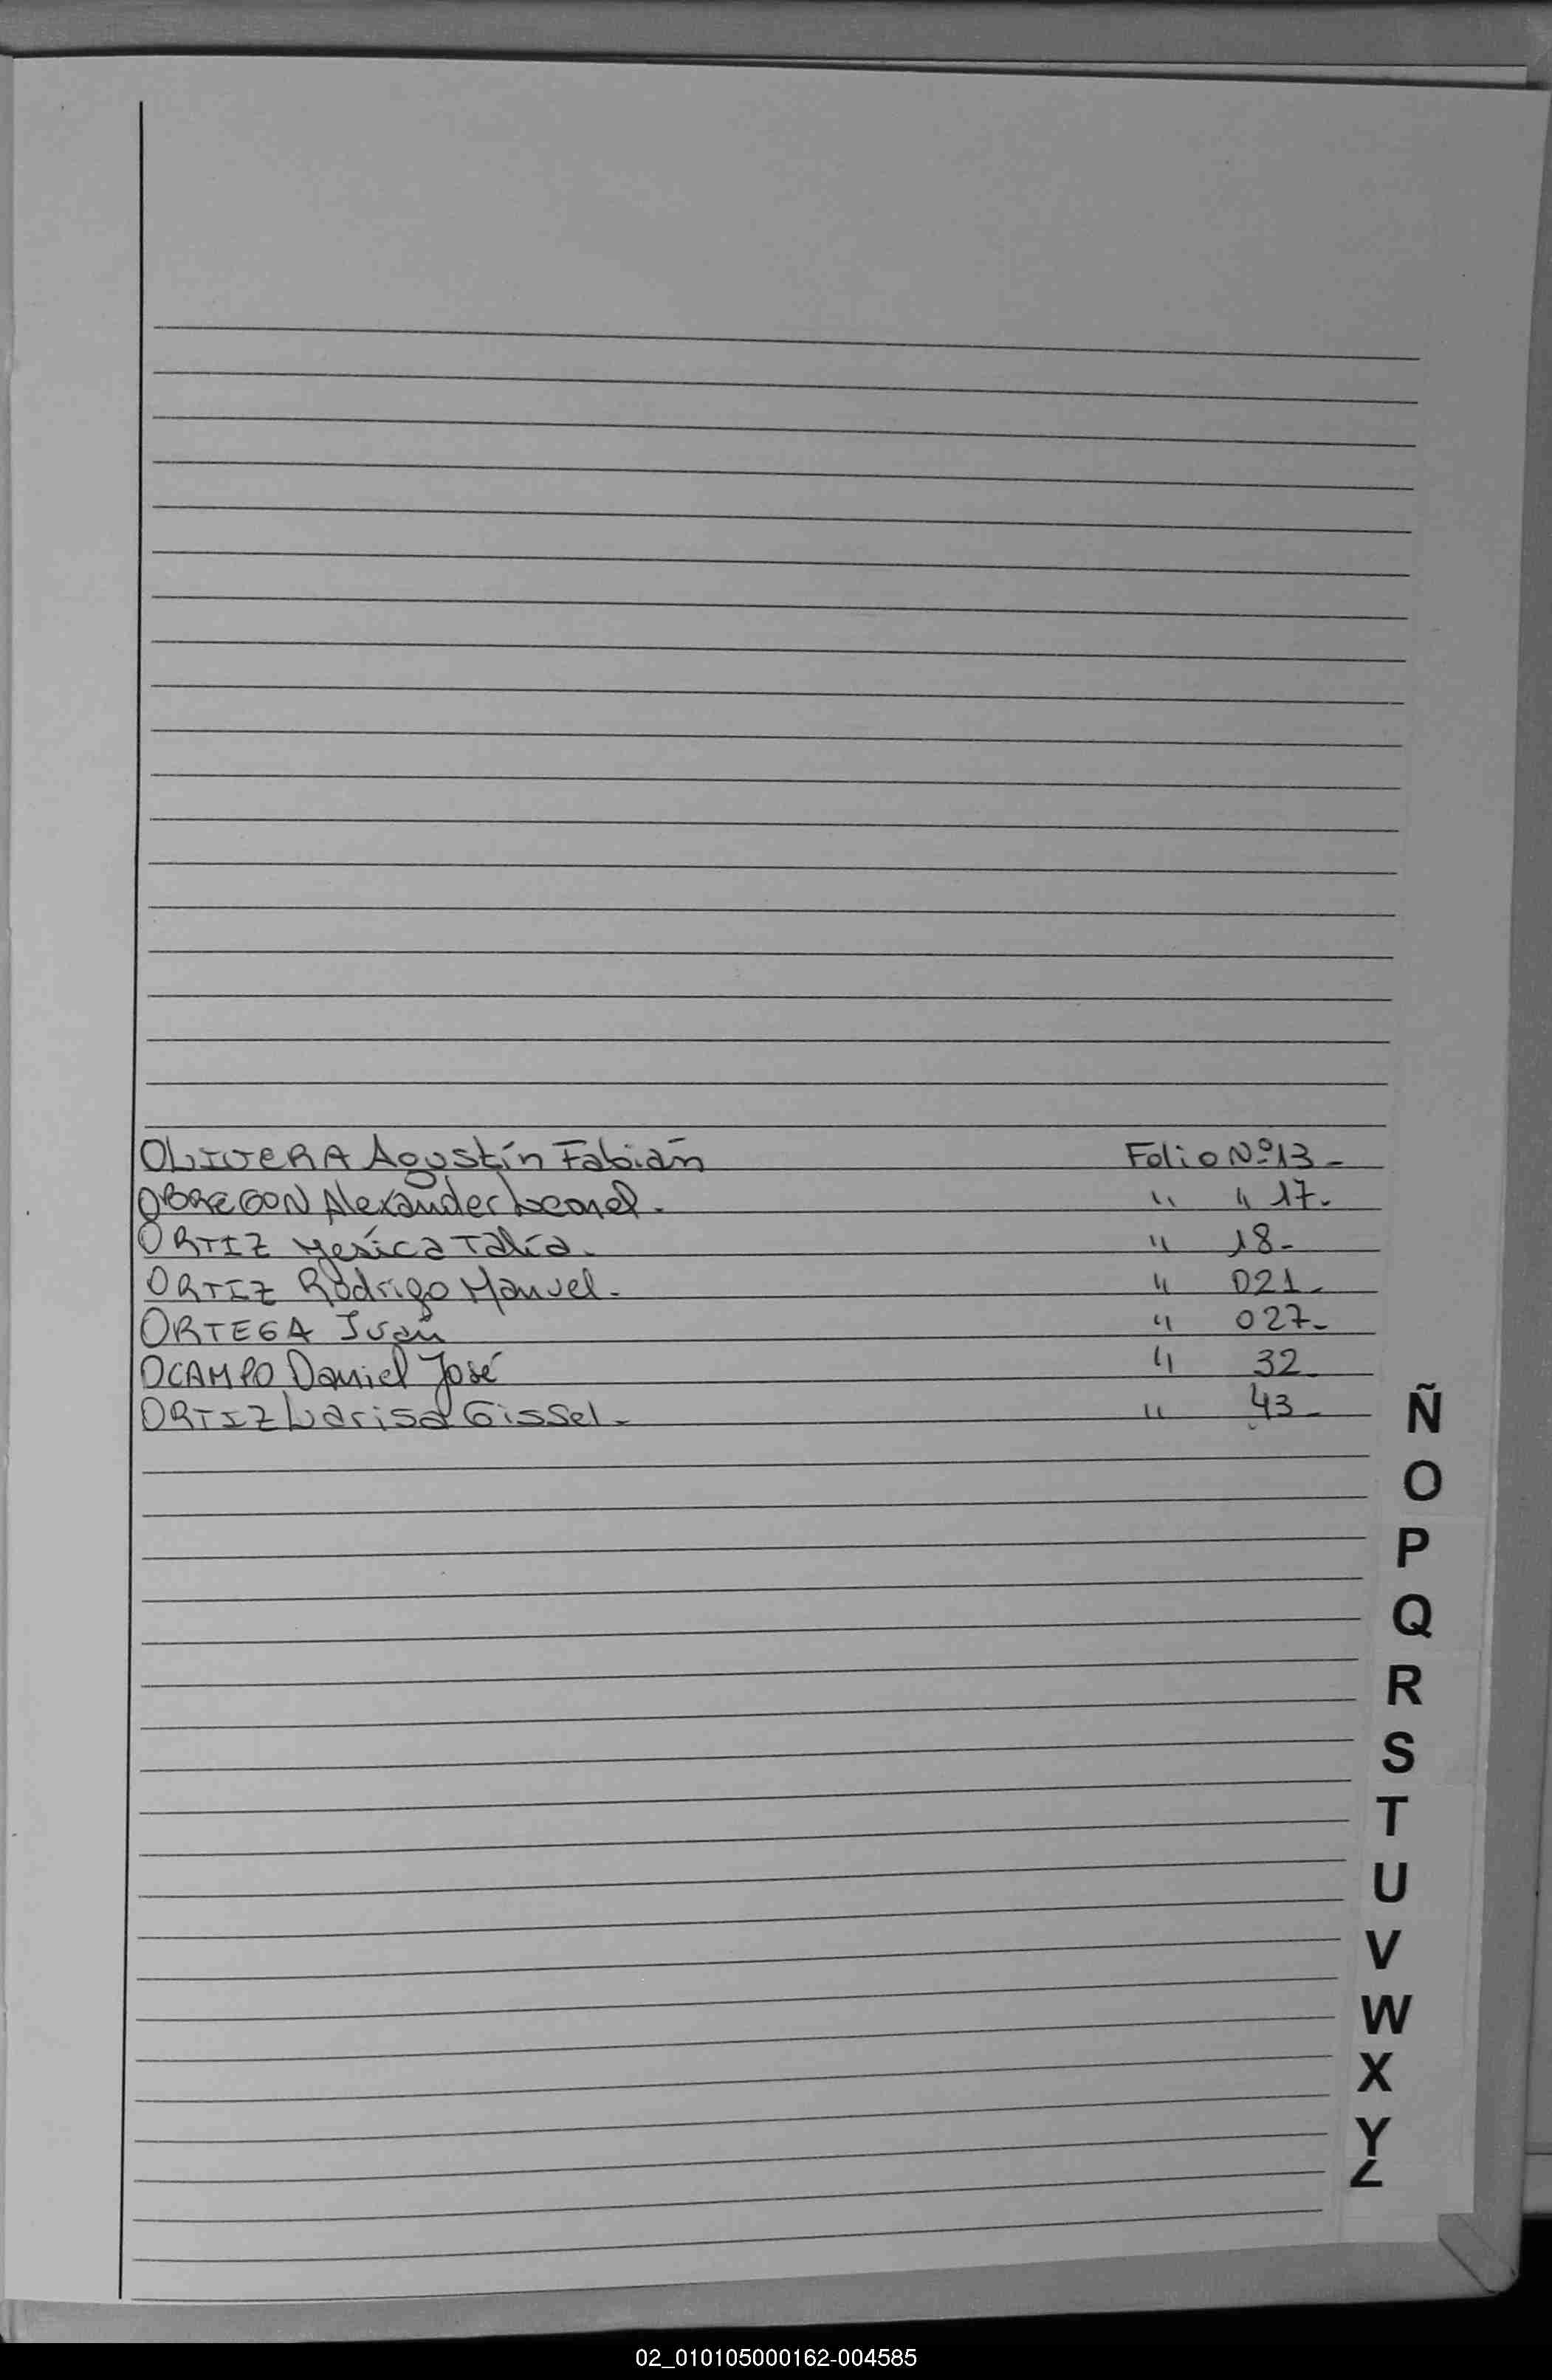 OLIVERA Agustín Fabián Folio Nº 13-
OBREGON Alexander Leonel. " " 17.
ORTIZ Yesica Talía. " 18-
ORTIZ Rodrigo Manuel. " 021-
ORTEGA Iván " 027-
OCAMPO Daniel José " 32-
ORTIZ Larisa Gissel- " 43-
Ñ
O
P
Q
R
S
T
U
V
W
X
Y
Z
02_010105000162-004585